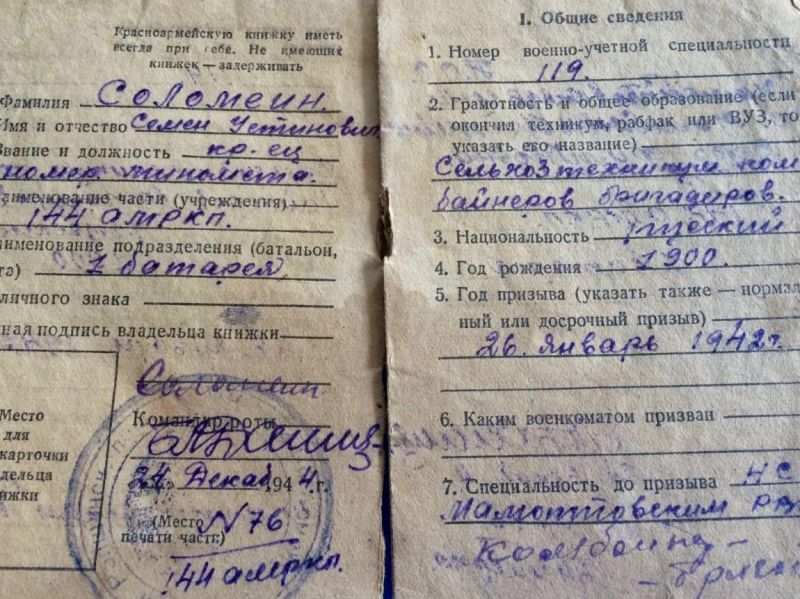 Красноармейскую книжку иметь
всегда при себе. Не имеющих
книжек — задерживать
Фамилия Соломеин.
Имя и отчество Семен Устинович
Звание и должность кр-ец
номер миномета.
наименование части (учреждения)
144 амркп.
наименование подразделения (батальон,
1 батарея
личного знака
ная подпись владельца книжки
Соломеин
Место
для
карточки
владельца
книжки
Командир роты
24 Декаб 1944 г.
(Место
печати части)
N 76
144 амркп.
1. Общие сведения
1. Номер военно-учетной специальности
119.
2. Грамотность и общее образование (если
окончил техникум, рабфак или ВУЗ, то
указать его название)
Сельхозтехникум ком
байнеров бригадиров.
3. Национальность русский
4. Год рождения 1900.
5. Год призыва (указать также — нормал
ный или досрочный призыв)
26. Январь 1942 г.
6. Каким военкоматом призван
7. Специальность до призыва
Мамонтовским
Комбайне-